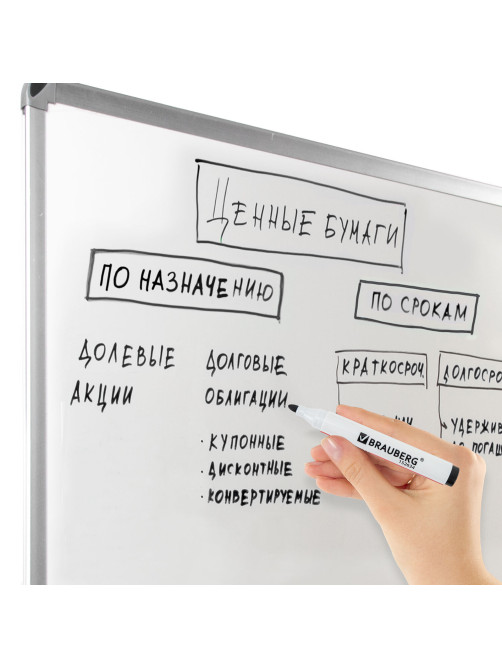 ЦЕННЫЕ БУМАГИ
ПО НАЗНАЧЕНИЮ
ПО СРОКАМ
ДОЛЕВЫЕ
АКЦИИ
ДОЛГОВЫЕ
ОБЛИГАЦИИ
· КУПОННЫЕ
· ДИСКОНТНЫЕ
· КОНВЕРТИРУЕМЫЕ
КРАТКОСРОЧ.
ДОЛГОСРО
УДЕРЖИВ
ДО ПОГАШ
BRAUBERG